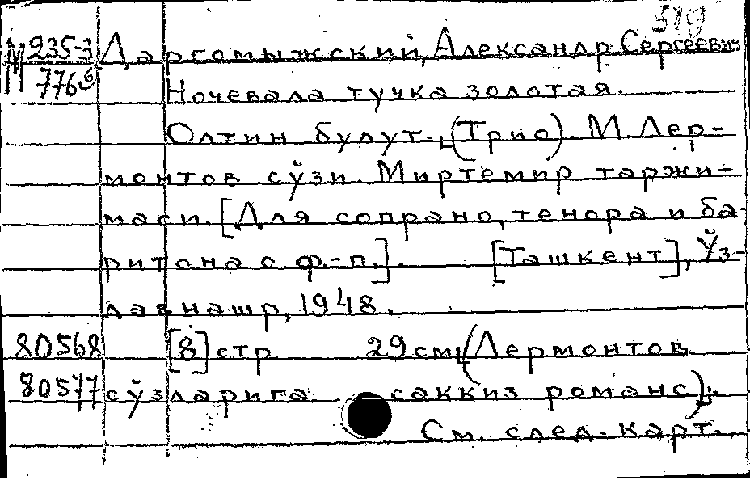 519
М 235-3 Даргомыжский, Александр Сергеевич
М 776б Ночевала тучка золотая.
Олтин булут. (Трио). М. Лер-
монтов сўзи. Миртемир таржи-
маси. [Для сопрано, тенора и ба-
ритона с ф.-п.]. [Ташкент], Ўз-
давнашр, 1948.
80568 [8] стр 29 см. (Лермонтов
80577 сўзларига саккиз романс).
См. след. карт.